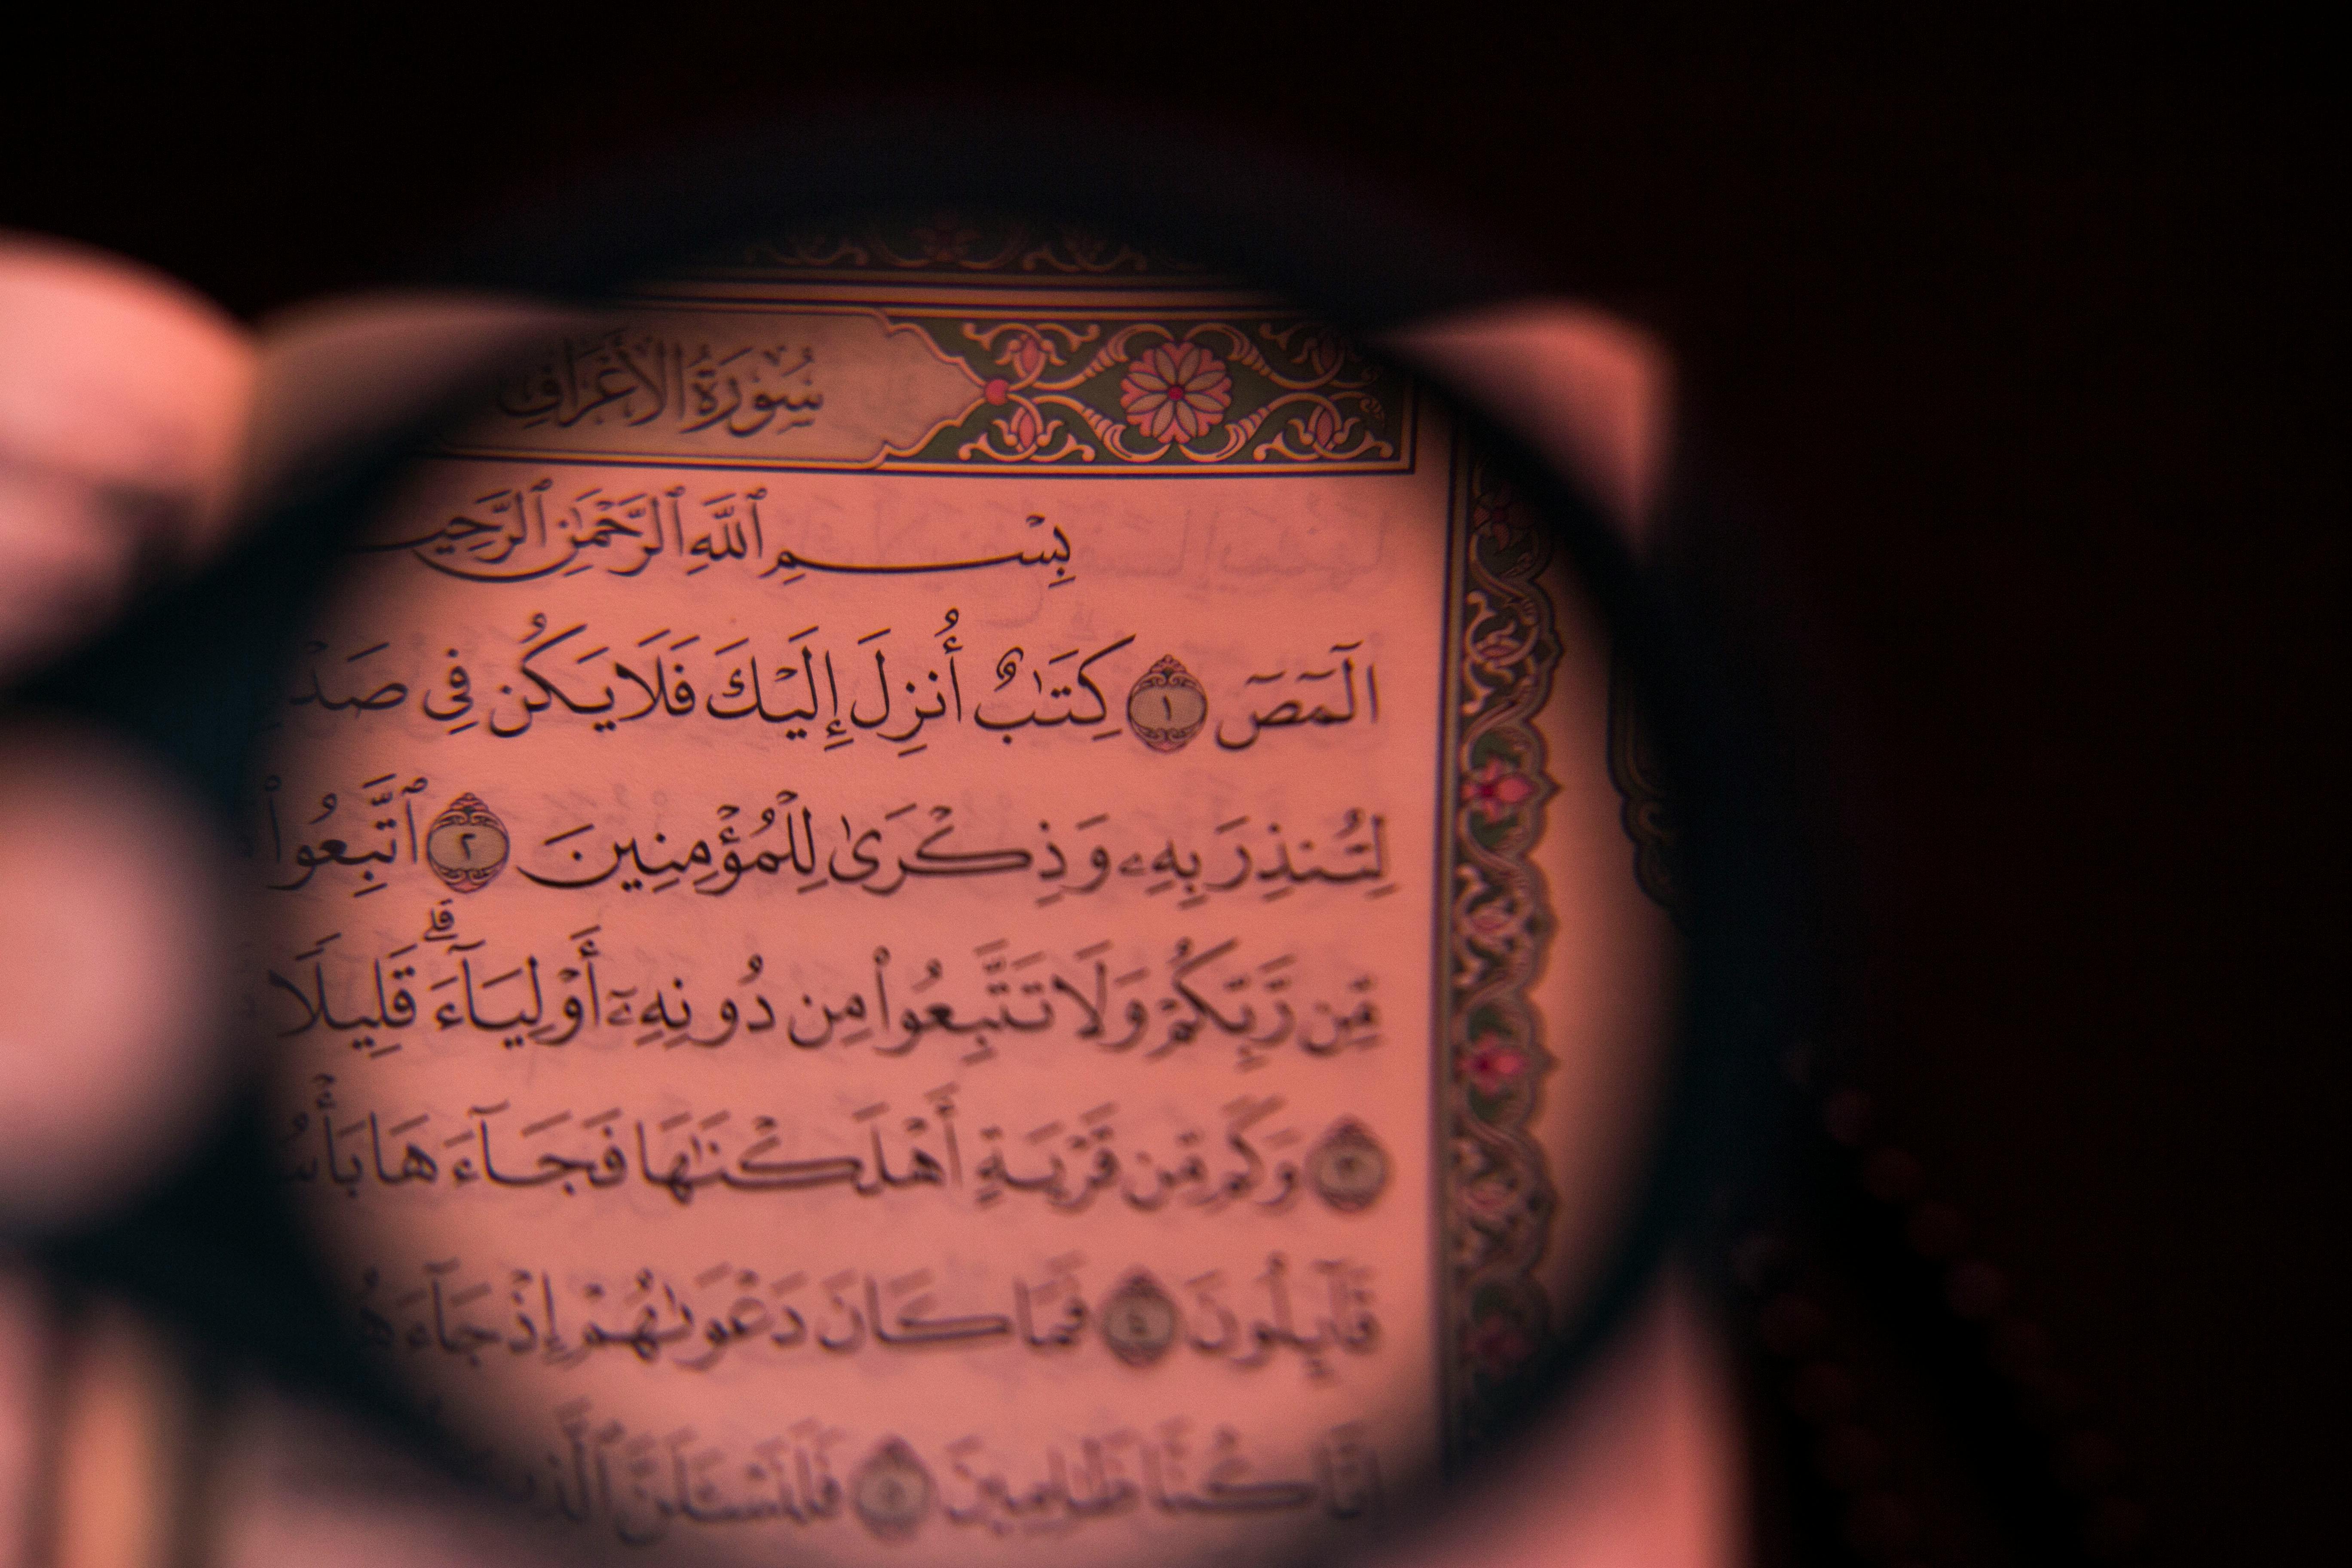 سُورَةُ الأَعْرَافِ
بِسْمِ ٱللَّهِ ٱلرَّحْمَٰنِ ٱلرَّحِيـ
الٓمٓصٓ ١ كِتَٰبٌ أُنزِلَ إِلَيْكَ فَلَا يَكُن فِى صَدْ
لِتُنذِرَ بِهِۦ وَذِكْرَىٰ لِلْمُؤْمِنِينَ ٢ ٱتَّبِعُوا۟
مِّن رَّبِّكُمْ وَلَا تَتَّبِعُوا۟ مِن دُونِهِۦٓ أَوْلِيَآءَ ۗ قَلِيلًا
٣ وَكَم مِّن قَرْيَةٍ أَهْلَكْنَٰهَا فَجَآءَهَا بَأْسُ
قَآئِلُونَ ٤ فَمَا كَانَ دَعْوَىٰهُمْ إِذْ جَآءَهُ
إِنَّا كُنَّا ظَٰلِمِينَ ٥ فَلَنَسْـَٔلَنَّ ٱلَّذِ